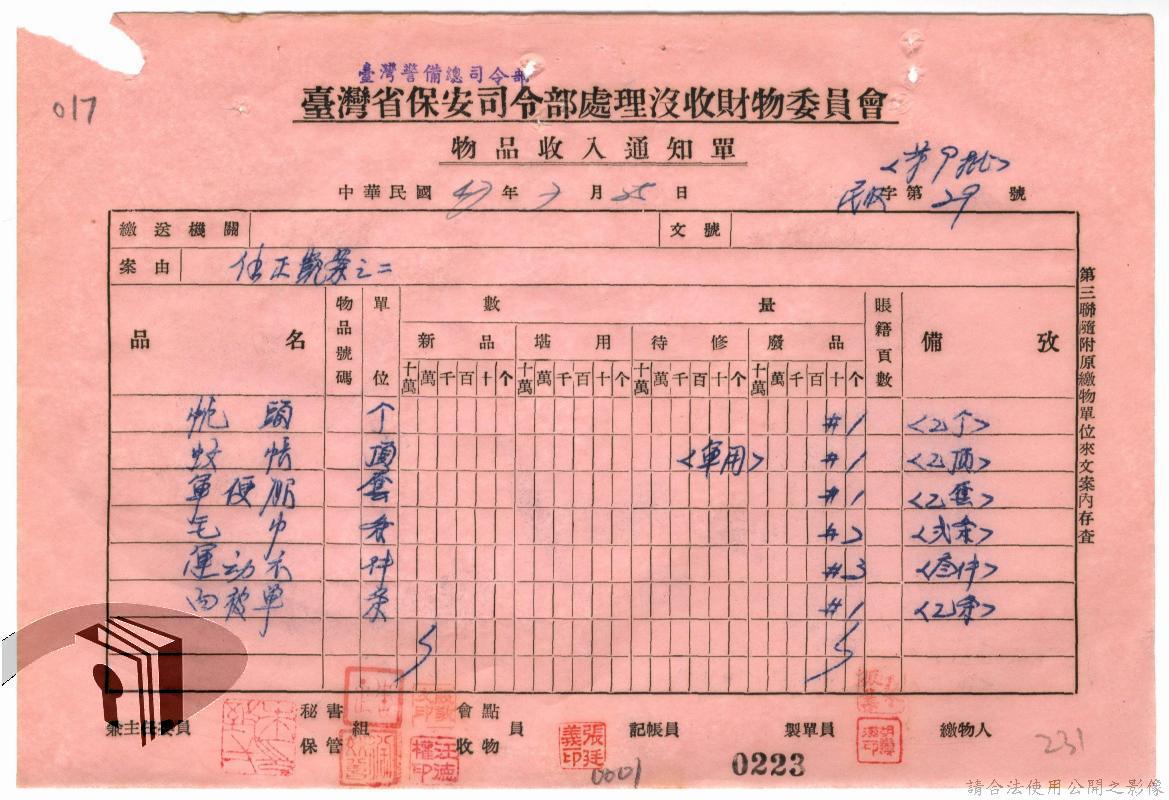 臺灣警備總司令部
臺灣省保安司令部處理沒收財物委員會
017
物品收入通知單
中華民國 47 年 7 月 25 日
民收字第 29 號
繳送機關 文號
案由
之二
第三聯隨附原繳物單位來文案內存查
品名 物品號碼 單位 數量 賬籍頁數 備攷
新品 堪用 待修 廢品
十萬 萬 千 百 十 个 十萬 萬 千 百 十 个 十萬 萬 千 百 十 个 十萬 萬 千 百 十 个
枕頭 个 #1 <乙个>
蚊帳 頂 <軍用> #1 <乙頂>
軍便服 套 #1 <乙套>
毛巾 条 #2 <弍条>
運动衣 件 #3 <叁件>
內被單 条 #1 <乙条>
兼主任委員 秘書組 保管 會點 收物 員 記帳員 製單員 繳物人
張廷義印
汪德權印
0001
0223
231
請合法使用公開之影像